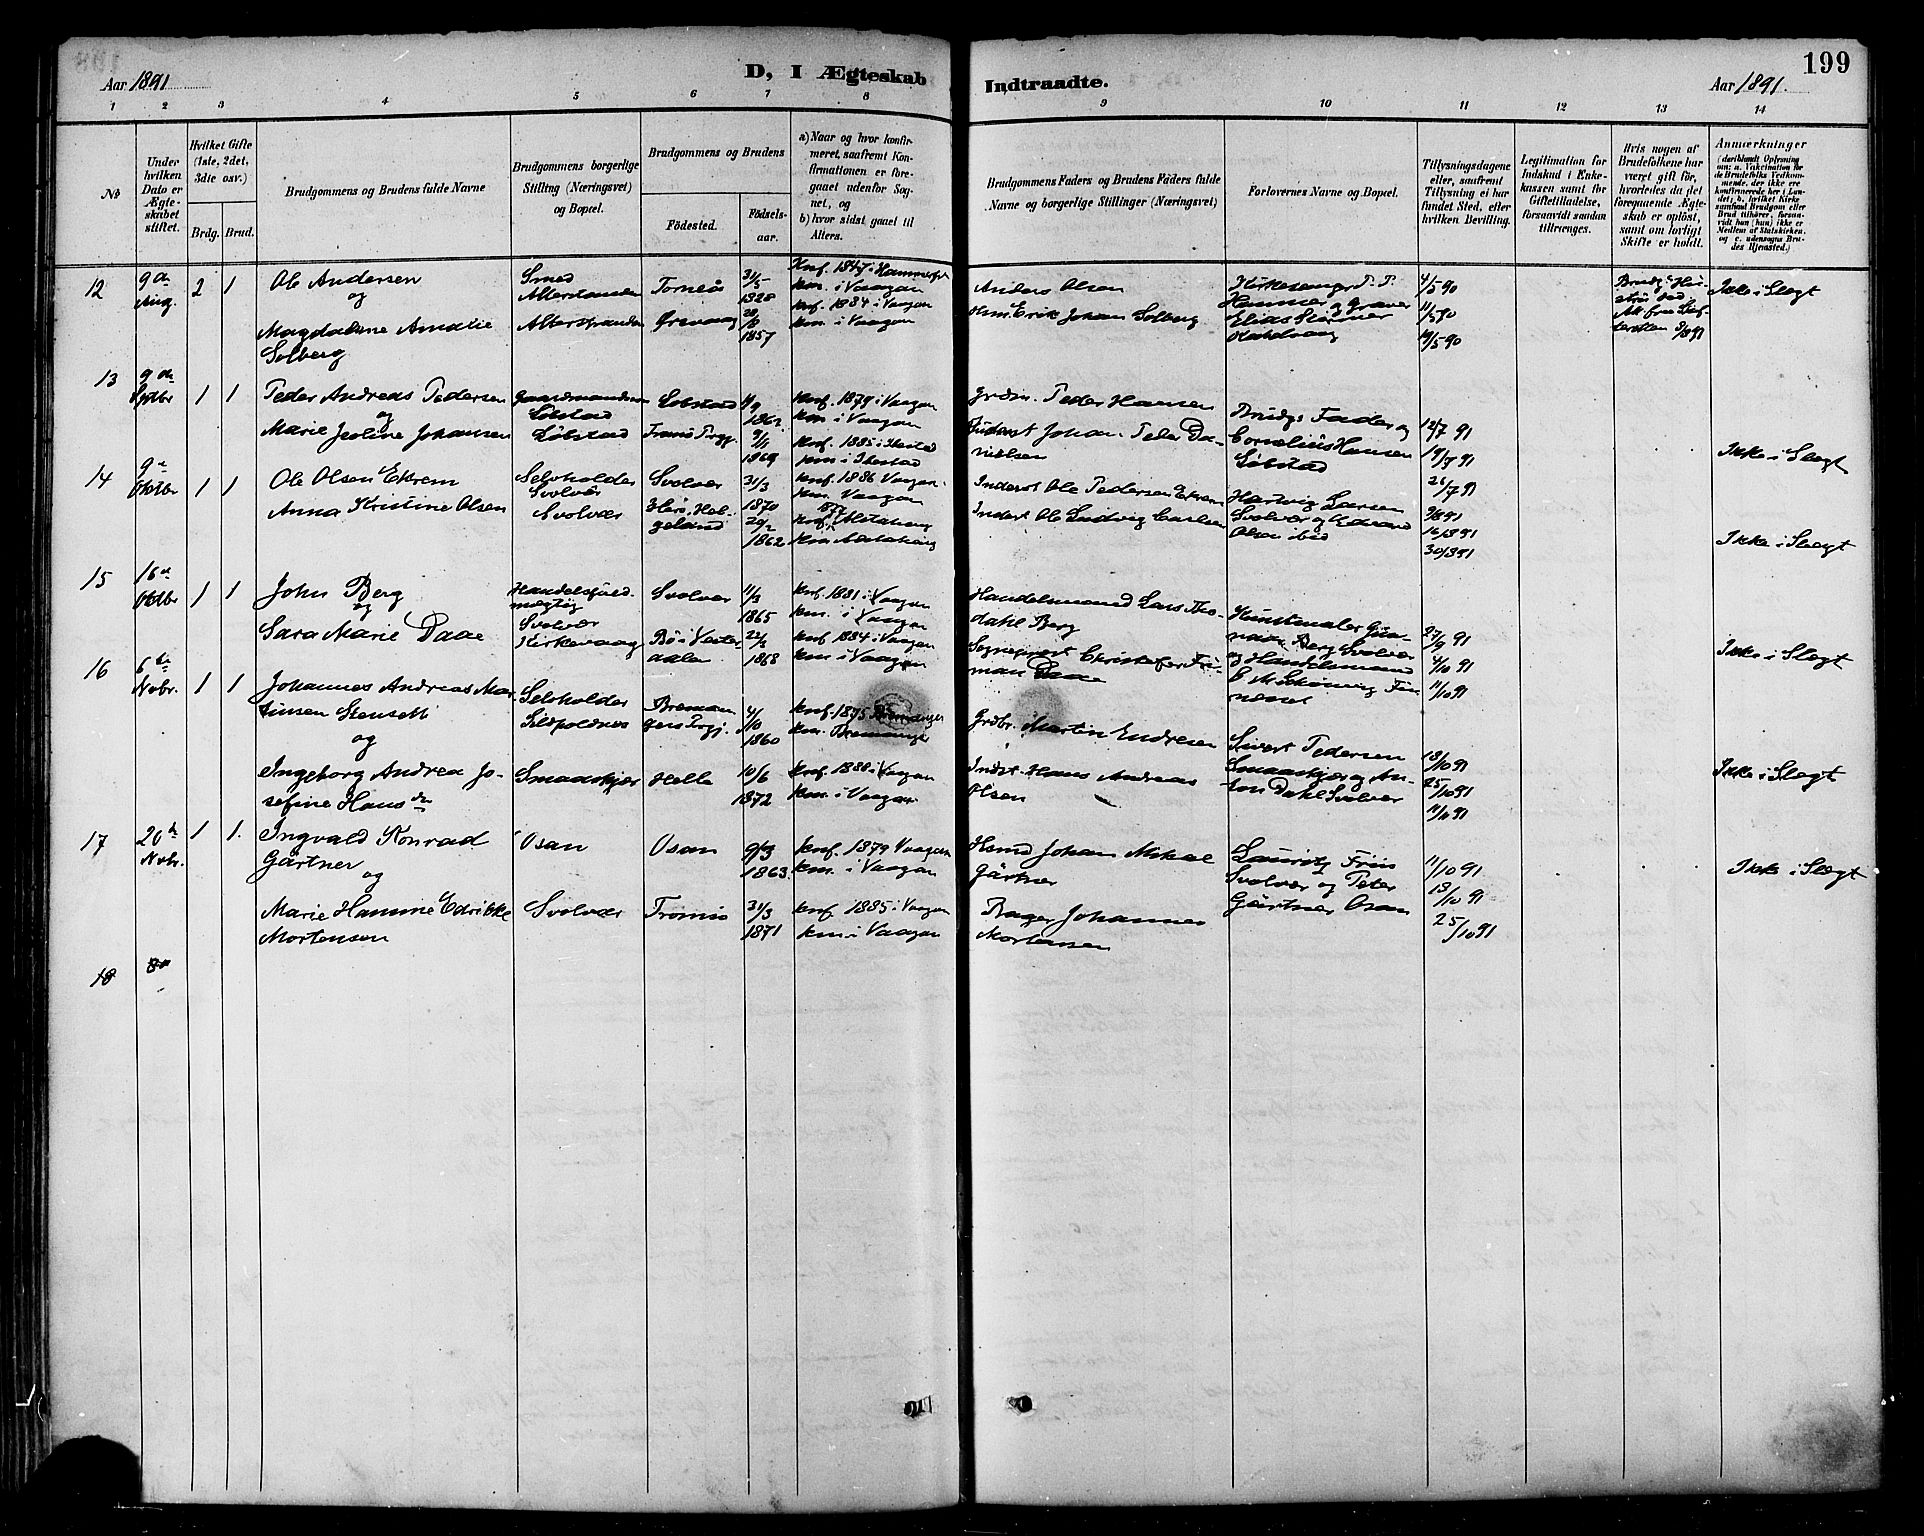 199
Aar 1891
D, I Ægteskab
Indtraadte.
Aar 1891.
1 2 3 4 5 6 7 8 9 10 11 12 13 14
No
Under hvilken Dato er Ægteskabet stiftet.
Hvilket Gifte (1ste, 2det, 3die osv.)
Brdg. Brud.
Brudgommens og Brudens fulde Navne
Brudgommens borgerlige Stilling (Næringsvei) og Bopæl.
Brudgommens og Brudens
Födested.
Födselsaar.
a) Naar og hvor konfirmeret, saafremt Konfirmationen er foregaaet udenfor Sognet, og
b) hvor sidst gaaet til Alters.
Brudgommens Faders og Brudens Faders fulde Navne og borgerlige Stillinger (Næringsvei)
Forlovernes Navne og Bopæl.
Tillysningsdagene eller, saafremt Tillysning ei har fundet Sted, efter hvilken Bevilling.
Legitimation for Indskud i Enkekassen samt for Giftetilladelse, forsaavidt saadan tiltrænges.
Hvis nogen af Brudefolkene har været gift för, hvorledes da det foregaaende Ægteskab er oplöst, samt om lovligt Skifte er holdt.
Anmærkninger
12
9de Aug.
2 1
Ole Andersen
og
Magdalene Amalie
Solberg
Smed
Alterstranden
Torneås
Örevaag
31/5
1828
1857
Knf. 1847 i Hammerfst
km. i Vaagan
knf. 1884 i Vaagan
km. i Vaagan
Anders Olsen
Hsm. Erik Johan Solberg
Kirkesanger P. P.
Hammer og Graver
Elias
4/5 90
11/5 90
Ikke i Slegt
13
9de Sptbr
1 1
Peder Andreas Pedersen
og
Marie Jecline Johansen
Gaardmandssøn
Löbstad
Löbstad
Löbstad
Tromsö Prgj.
1862
9/1
1869
knf. 1879 i Vaagan
km. i Vaagan
knf. 1885 i Ibestad
km. i Ibestad
Grdm. Peder Hansen
Inderst Johan Peder Da-
nielsen
Brudgs Fader og
Cornelius Hansen
Löbstad
12/7 91
19/7 91
26/7 91
Ikke i Slegt
14
Oktbr
1 1
Ole Olsen Ekrem
Anna Kristine Olsen
Selvholder
Svolvær
Svolvær
Svolvær
Herö, Hel-
geland
31/3
1870
20/2
1862
knf. 1886 Vaagan.
km. Vaagan
knf. Alstahoug
km. Alstahoug
Inderst Ole Pedersen Ekrem
Inderst Ole Ludvig Carlsen
Hartvig Larsen
Svolvær og Edvard
Olsen ibid
3/8 91
16/8 91
30/8 91
Ikke i Slegt
15
16de Oktbr
1 1
John Berg
og
Sara Marie Daae
Handelsfuld-
mægtig
Svolvær
Kirkevaag
Svolvær
Bö i Vester-
aalen
11/3
1865
22/2
1868
knf. 1881 i Vaagan
km. i Vaagan
knf. 1884 i Vaagan
km. i Vaagan
Handelsmand Lars Tho-
dahl Berg
Sogneprest Christofer Fri-
man Daae
Kunstmaler Gun-
nar Berg Svolvær
og Handelsmand
E M Schöning Fin-
neset
27/9 91
4/10 91
11/10 91
Ikke i Slegt
16
6te Nobr.
1 1
Johannes Andreas Mar-
tinsen Stensett
og
Ingeborg Andrea Jo-
sefine Hansdr
Selvholder
Smaaskjær
Bremangers Prgj.
Helle
4/10
1860
10/6
1872
knf. 1875 Bremanger
km. Bremanger
knf. 1888 i Vaagan
km. i Vaagan
Grdbr. Martin Endresen
Indst. Hans Andreas
Olsen
Sivert Pedersen
Smaaskjær og An-
ton Dahl Svolvær
18/10 91
25/10 91
11/10 91
Ikke i Slegt
17
20de Nobr.
1 1.
Ingvald Konrad
Gärtner
og
Marie Hamine Edrikke
Mortensen
Osan
Svolvær
Osan
Tromsö
9/3
1863.
31/3
1871
knf. 1879 Vaagan
km. i Vaagan
knf. 1885 i Vaagan
km. i Vaagan
Hsmd Johan Mikal
Gärtner
Bager Johannes
Mortensen
Lauritz Friis
Svolvær og Peter
Gärtner Osan
11/10 91
18/10 91
25/10 91
Ikke i Slegt
18